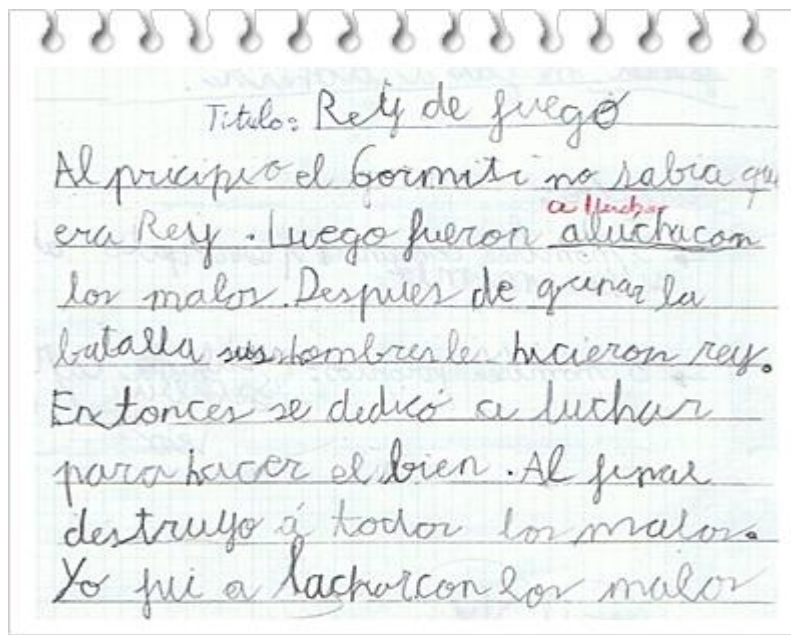 Título: Rey de fuego
Al pricipio el Gormiti no sabia que
a luchar
era Rey. Luego fueron aluchacon
los malos. Despues de gunar la
batalla sus hombres les hicieron rey.
Entonces se dedicó a luchar
para hacer el bien. Al final
destruyo á todos los malos.
Yo fui a lachar con los malos